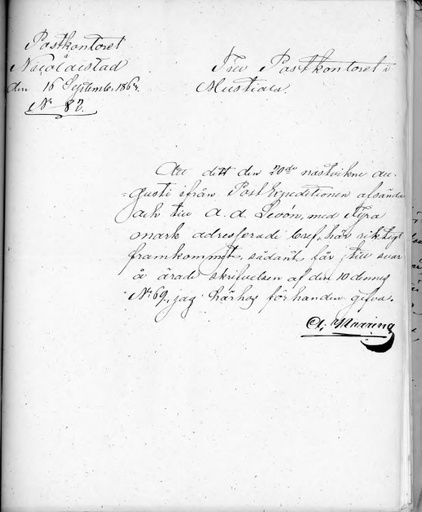 Postkontoret
Nicolaistad
den 16 September 1863.
No 82.
Till Postkontoret i
Mustiala.
Att det den 20de nästvikne au-
gusti ifrån PostExpeditionen afsände
och till A. d. Levón, med
mark adresserade bref, här riktigt
framkommit, sådant får till svar
å ärade skrifvelsen af den 10 dennes
No 69, jag härhos förhanden gifva.